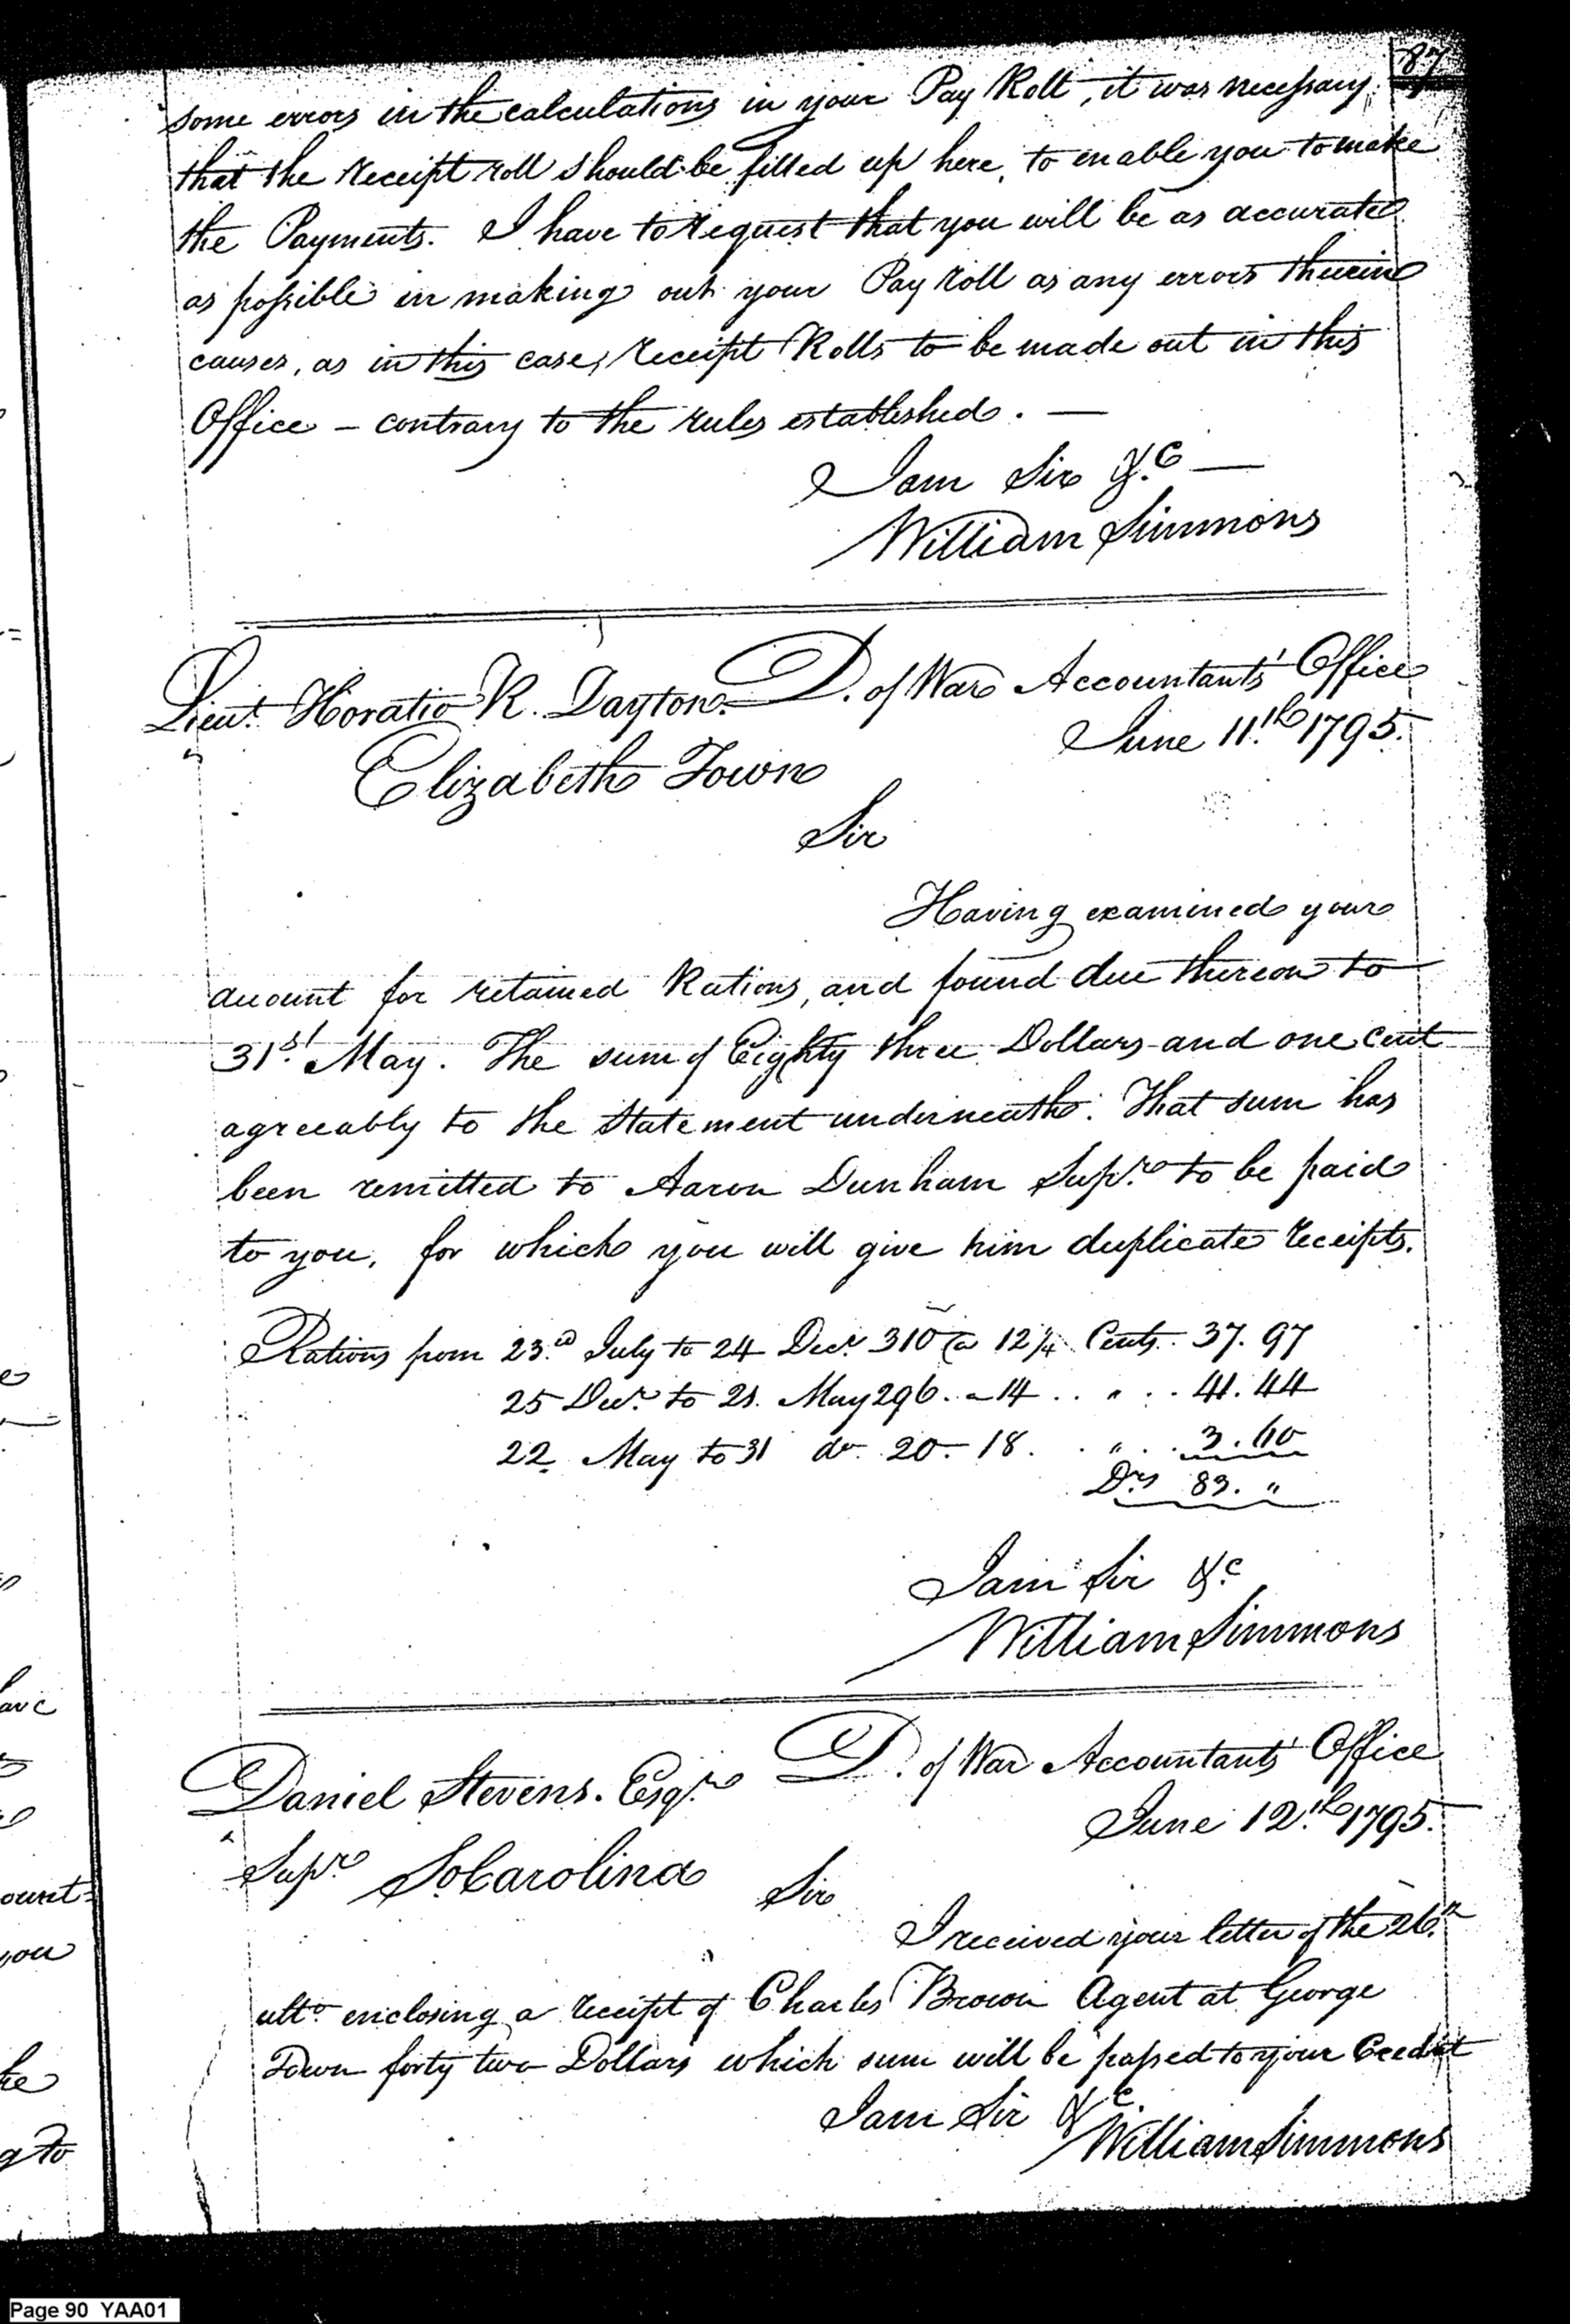 87
some errors in the calculations in your Pay Roll, it was necessary
that the receipt roll should be filled up here, to enable you to make
the Payments. I have to request that you will be as accurate
as possible in making out your Pay roll as any errors therein
causes, as in this case, receipt Rolls to be made out in this
Office – contrary to the rules established. —
I am Sir &c —
William Simmons
Lieut. Horatio R. Dayton. D. of War Accountants' Office
June 11.th 1795.
Elizabeth Town
Sir
Having examined your
account for retained Rations, and found due thereon to
31st. May. The sum of Eighty three Dollars and one cent
agreeably to the Statement underneath. That sum has
been remitted to Aaron Dunham Supr. to be paid
to you, for which you will give him duplicate receipts.
Rations from 23.d July to 24 Decr. 310 @ 12 1/4 Cents. 37. 97
25 Decr. to 21. May 296. - 14 . . " . . 41. 44
22 May to 31 do. 20. - 18. . " . . 3. 60
Drs 83. "
I am Sir &c
William Simmons
Daniel Stevens. Esqr. D. of War Accountants' Office
June 12.th 1795.
Supr. So Carolina
Sir
I received your letter of the 26.th
ulto. enclosing a receipt of Charles Brown Agent at George
Town forty two Dollars which sum will be passed to your Credit
I am Sir &c.
William Simmons
Page 90 YAA01